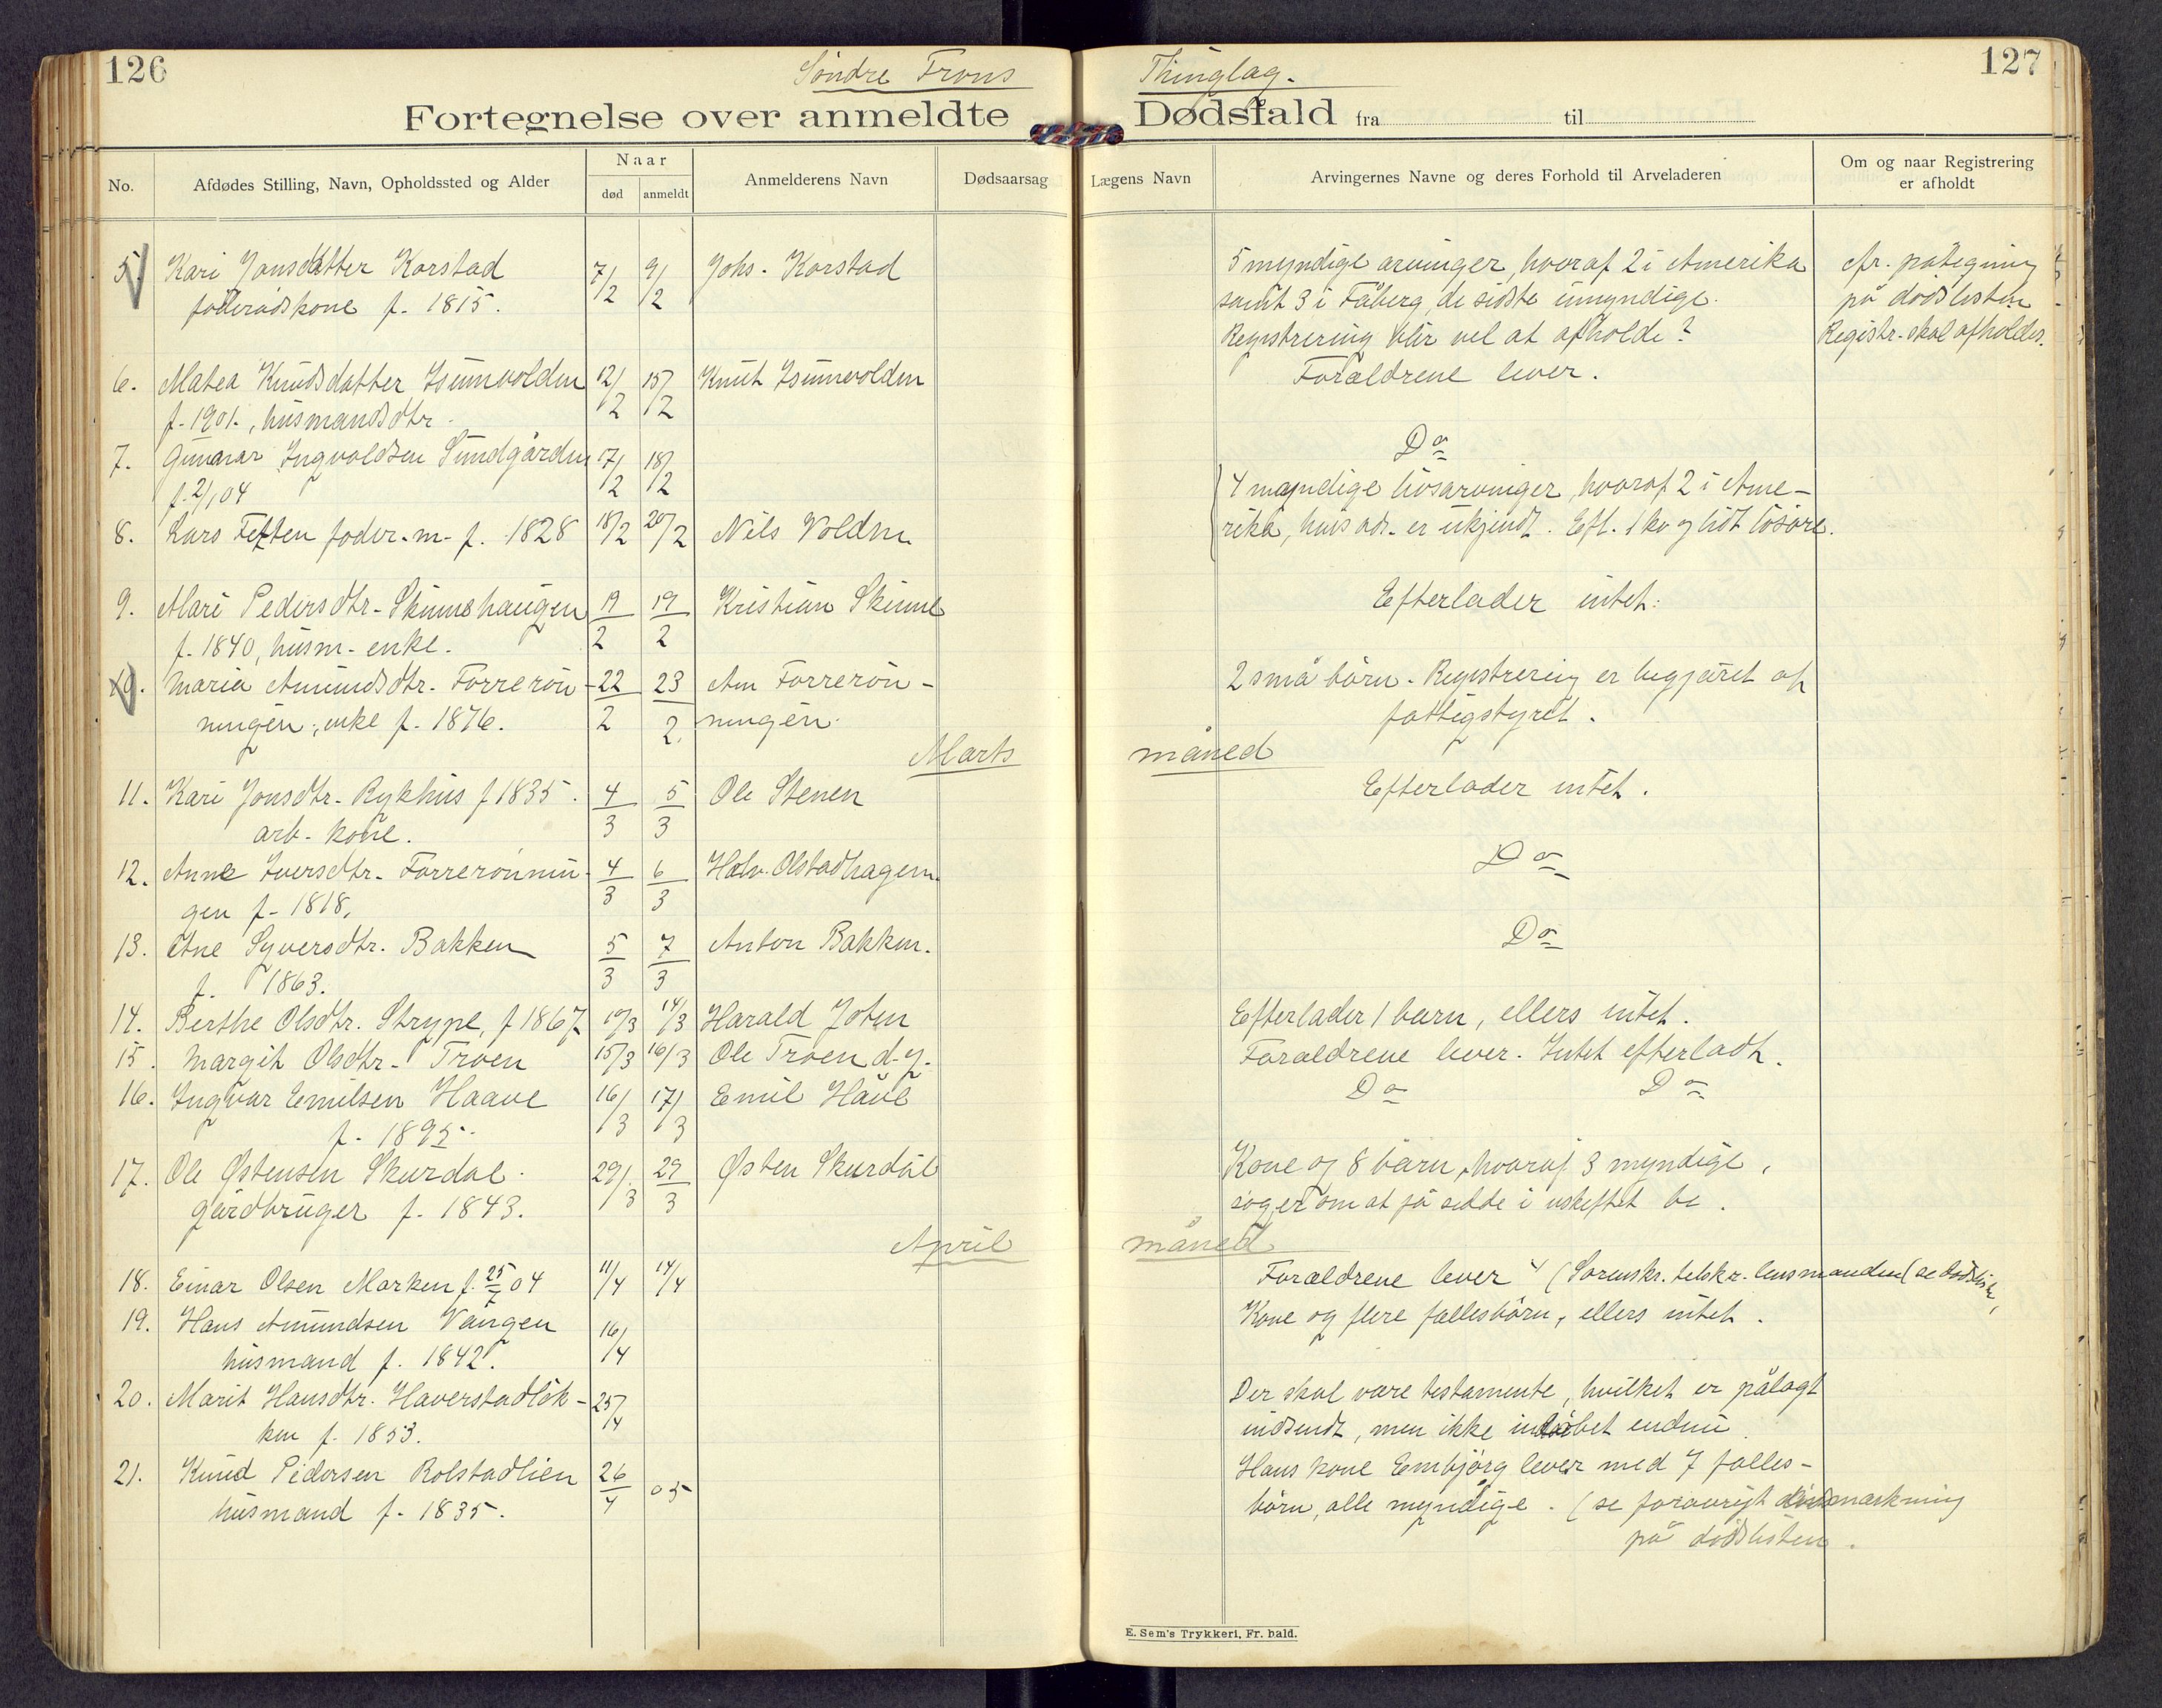 126
127
Söndre Frons Thinglag.
Fortegnelse over anmeldte Dødsfald fra til
No.
Afdødes Stilling, Navn, Opholdssted og Alder
Naar
død
anmeldt
Anmelderens Navn
Dødsaarsag
Lægens Navn
Arvingernes Navne og deres Forhold til Arveladeren
Om og naar Registrering
er afholdt
5. Kari Jonsdatter Korstad 7/2 9/2 Johs. Korstad 5 myndige arvinger, hvoraf 2 i Amerika cfr. påtegning
föderådskone f. 1815. samt 3 i Fåberg, de sidste umyndige. på dödslisten
Registrering blir vel at afholde? Registr. skal afholdes.
6. Matea Knudsdatter Isumvolden 12/2 15/2 Knut Isumvolden Forældrene lever.
f. 1901., husmandsdtr.
7. Gunnar Ingvoldsen Sundgården 17/2 18/2 Do
f. 2/1 04
4 myndige livsarvinger, hvoraf 2 i Ame-
8. Lars Feften foder. m. f. 1828 18/2 20/2 Nils Volden rika, hvis adr. er ukjendt. Eft. 1 ko og lidt lösöre.
9. Mari Pedersdtr. Skinnshaugen 19/2 19/2 Kristian Skinne Efterlader intet.
f. 1840, husm. enke.
10. Maria Amundsdtr. Forrerön- 22/2 23/2 Am Forrerön- 2 små börn. Registrering er begjæret af
ningen, enke f. 1876. ningen. fattigstyret.
Marts måned
11. Kari Jonsdtr. Rykhus f 1835. 4/3 5/3 Ole Stenen Efterlader intet.
arb. kone.
12. Anne Iversdtr. Forrerönnin- 4/3 6/3 Halv. Olstadhagem. Do
gen f. 1818.
13. Ane Syversdtr. Bakken 5/3 7/3 Anton Bakken. Do
f. 1863.
14. Berthe Olsdtr. Strype, f 1867 10/3 14/3 Harald Joten Efterlader 1 barn, ellers intet.
15. Margit Olsdtr. Troen 15/3 16/3 Ole Troen d.y. Forældrene lever. Intet efterladt.
16. Ingvar Emilsen Haave 16/3 17/3 Emil Håve Do Do
f. 1895.
17. Ole Østensen Skurdal. 29/3 29/3 Østen Skurdal Kone og 8 børn, hvoraf 3 myndige,
gårdbruger f. 1843. söger om at få sidde i uskiftet bo.
April måned
18. Einar Olsen Marken f. 25/7 04 11/4 14/4 Forældrene lever (Sorenskr. telskr. lensmanden (se dødsliste,
19. Hans Amundsen Vangen 16/4 Kone og flere fællesbörn, ellers intet.
husmand f. 1842.
20. Marit Hansdtr. Haverstadlök- 25/4 Der skal være testamente, hvilket er pålagt
ken f. 1853. indsendt, men ikke indløbet endnu.
21. Knud Pedersen Rolstadlien 26/4 05 Hans kone Embjørg lever med 7 fælles-
husmand f. 1835. börn, alle myndige. (se forøvrigt anmærkning
på dödslisten.
E. Sem's Trykkeri, Fr. hald.